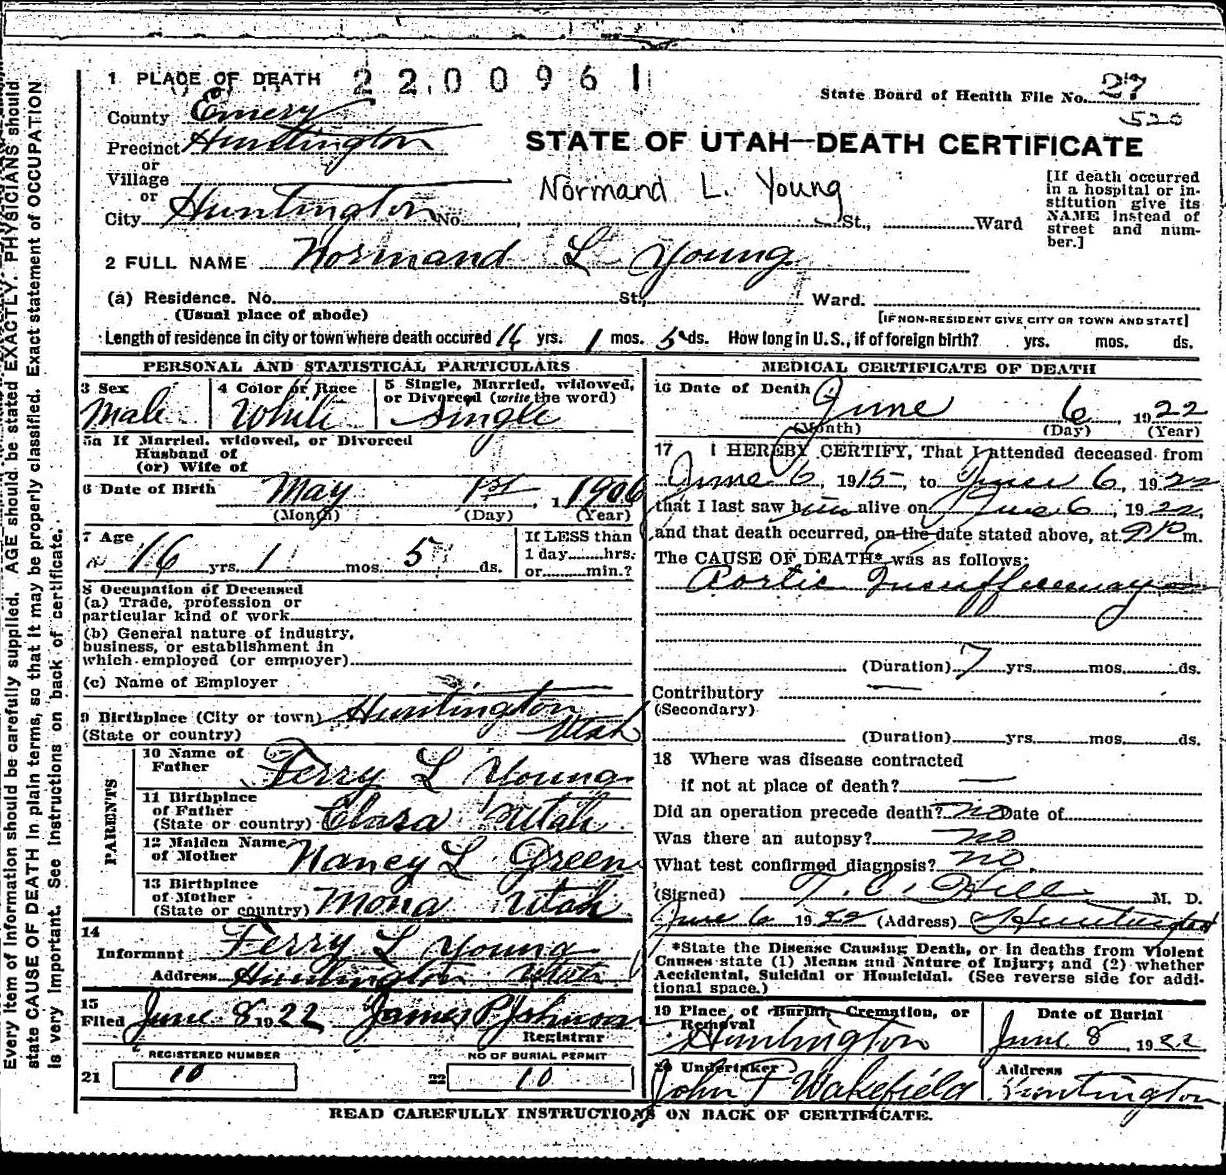 1 PLACE OF DEATH 2200961
State Board of Health File No. 27
520
County Emery
Precinct Huntington
or
Village
or
City Huntington No. St., Ward
STATE OF UTAH—DEATH CERTIFICATE
Normand L. Young
[If death occurred
in a hospital or in-
stitution give its
NAME instead of
street and num-
ber.]
2 FULL NAME Normand L Young
(a) Residence. No. St., Ward.
(Usual place of abode)
[IF NON-RESIDENT GIVE CITY OR TOWN AND STATE]
Length of residence in city or town where death occured 16 yrs. 1 mos. 5 ds. How long in U.S., if of foreign birth? yrs. mos. ds.
PERSONAL AND STATISTICAL PARTICULARS
3 Sex
Male
4 Color or Race
White
5 Single, Married, widowed,
or Divorced (write the word)
Single
5a If Married, widowed, or Divorced
Husband of
(or) Wife of
6 Date of Birth May 1st, 1906
(Month) (Day) (Year)
7 Age
16 yrs. 1 mos. 5 ds.
If LESS than
1 day hrs.
or min.?
8 Occupation of Deceased
(a) Trade, profession or
particular kind of work
(b) General nature of industry,
business, or establishment in
which employed (or employer)
(c) Name of Employer
9 Birthplace (City or town) Huntington
(State or country) Utah
PARENTS
10 Name of
Father Ferry L Young
11 Birthplace
of Father
(State or country) Utah
12 Maiden Name
of Mother Nancy L Green
13 Birthplace
of Mother
(State or country) Mona Utah
14
Informant Ferry L Young
Address Huntington Utah
15
Filed June 8 1922 James P. Johnson
Registrar
REGISTERED NUMBER NO OF BURIAL PERMIT
21 10 22 10
MEDICAL CERTIFICATE OF DEATH
16 Date of Death June 6 1922
(Month) (Day) (Year)
17 I HEREBY CERTIFY, That I attended deceased from
June 6, 1915, to June 6, 1922
that I last saw him alive on June 6, 1922,
and that death occurred, on the date stated above, at 9 P m.
The CAUSE OF DEATH* was as follows:
Aortic Insufficiency
(Duration) 7 yrs. mos. ds.
Contributory
(Secondary)
(Duration) yrs. mos. ds.
18 Where was disease contracted
if not at place of death?
Did an operation precede death? no Date of
Was there an autopsy? no
What test confirmed diagnosis? no
(Signed) T. C. Hill M. D.
June 6 1922 (Address) Huntington
*State the Disease Causing Death, or in deaths from Violent
Causes state (1) Means and Nature of Injury; and (2) whether
Accidental, Suicidal or Homicidal. (See reverse side for addi-
tional space.)
19 Place of Burial, Cremation, or
Removal
Huntington
Date of Burial
June 8, 1922
20 Undertaker
John F Wakefield
Address
Huntington
READ CAREFULLY INSTRUCTIONS ON BACK OF CERTIFICATE.
Every item of information should be carefully supplied. AGE should be stated EXACTLY. PHYSICIANS should
state CAUSE OF DEATH in plain terms, so that it may be properly classified. Exact statement of OCCUPATION
is very important. See instructions on back of certificate.